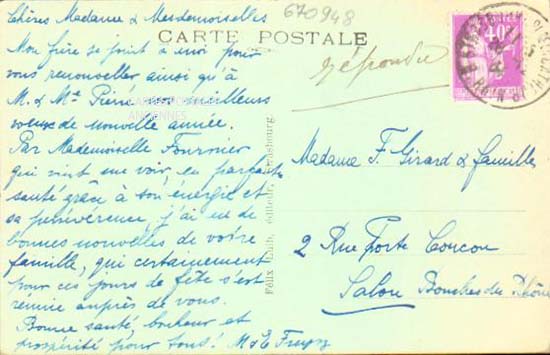 Chères Madame & Mesdemoiselles
Mon frère se joint à moi pour
vous renouveller ainsi qu'à
M. & Me Pierre nos meilleurs
voeux de nouvelle année.
Par Mademoiselle Fournier
qui vint me voir en parfaite
santé grâce à son énergie et
sa persévérence, j'ai eu de
bonnes nouvelles de votre
famille, qui certainement
pour ces jours de fête s'est
réunie auprès de vous.
Bonne santé, bonheur et
prospérité pour tous! M & E
670948
CARTE POSTALE
répondu
40c
CARTES POSTALES
ANCIENNES
Félix Luib, éditeur, Strasbourg.
Madame F. Girard & famille
2 Rue Porte Coucou
Salon Bouches du Rhône